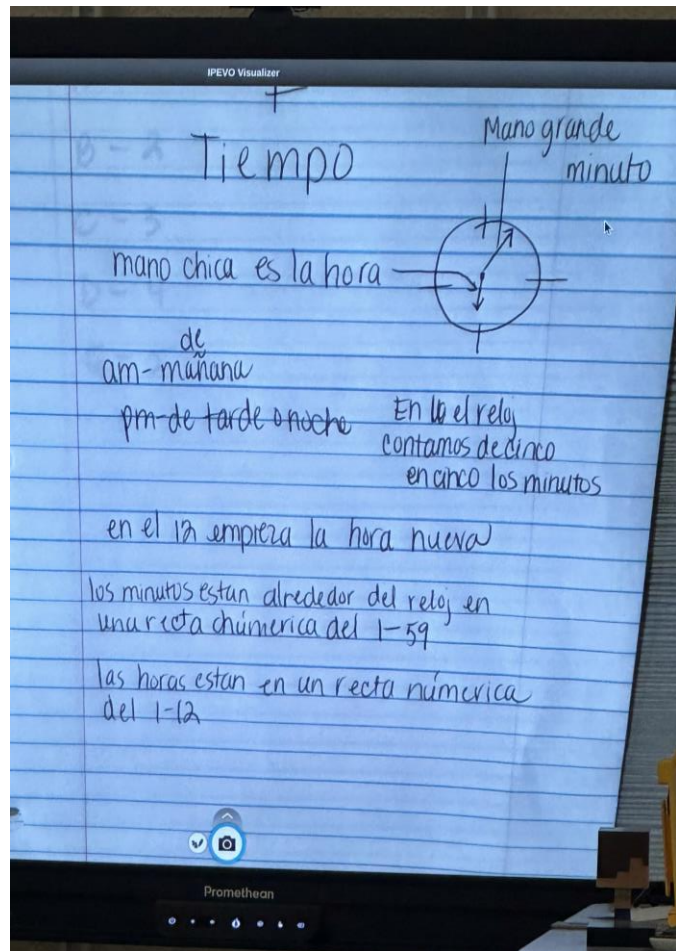 IPEVO Visualizer
Tiempo
Mano grande
minuto
mano chica es la hora
de
am-mañana
pm-de tarde o noche
En el reloj
contamos de cinco
en cinco los minutos
en el 12 empieza la hora nueva
los minutos estan alrededor del reloj en
una recta númerica del 1-59
las horas estan en un recta númerica
del 1-12
Promethean